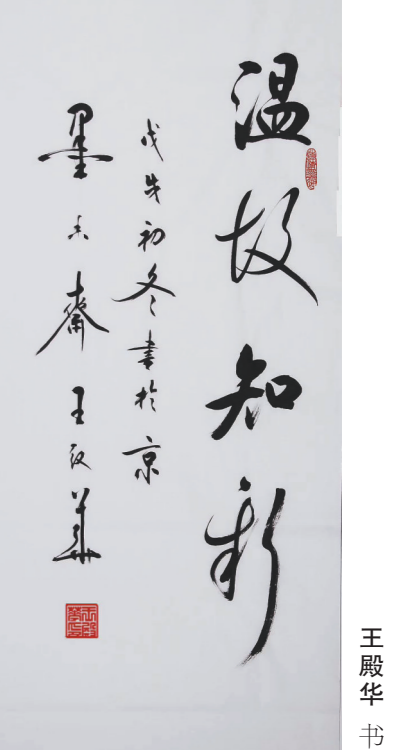 温故知新
戊戌初冬書於京
墨香齋王殿華
王殿华 书